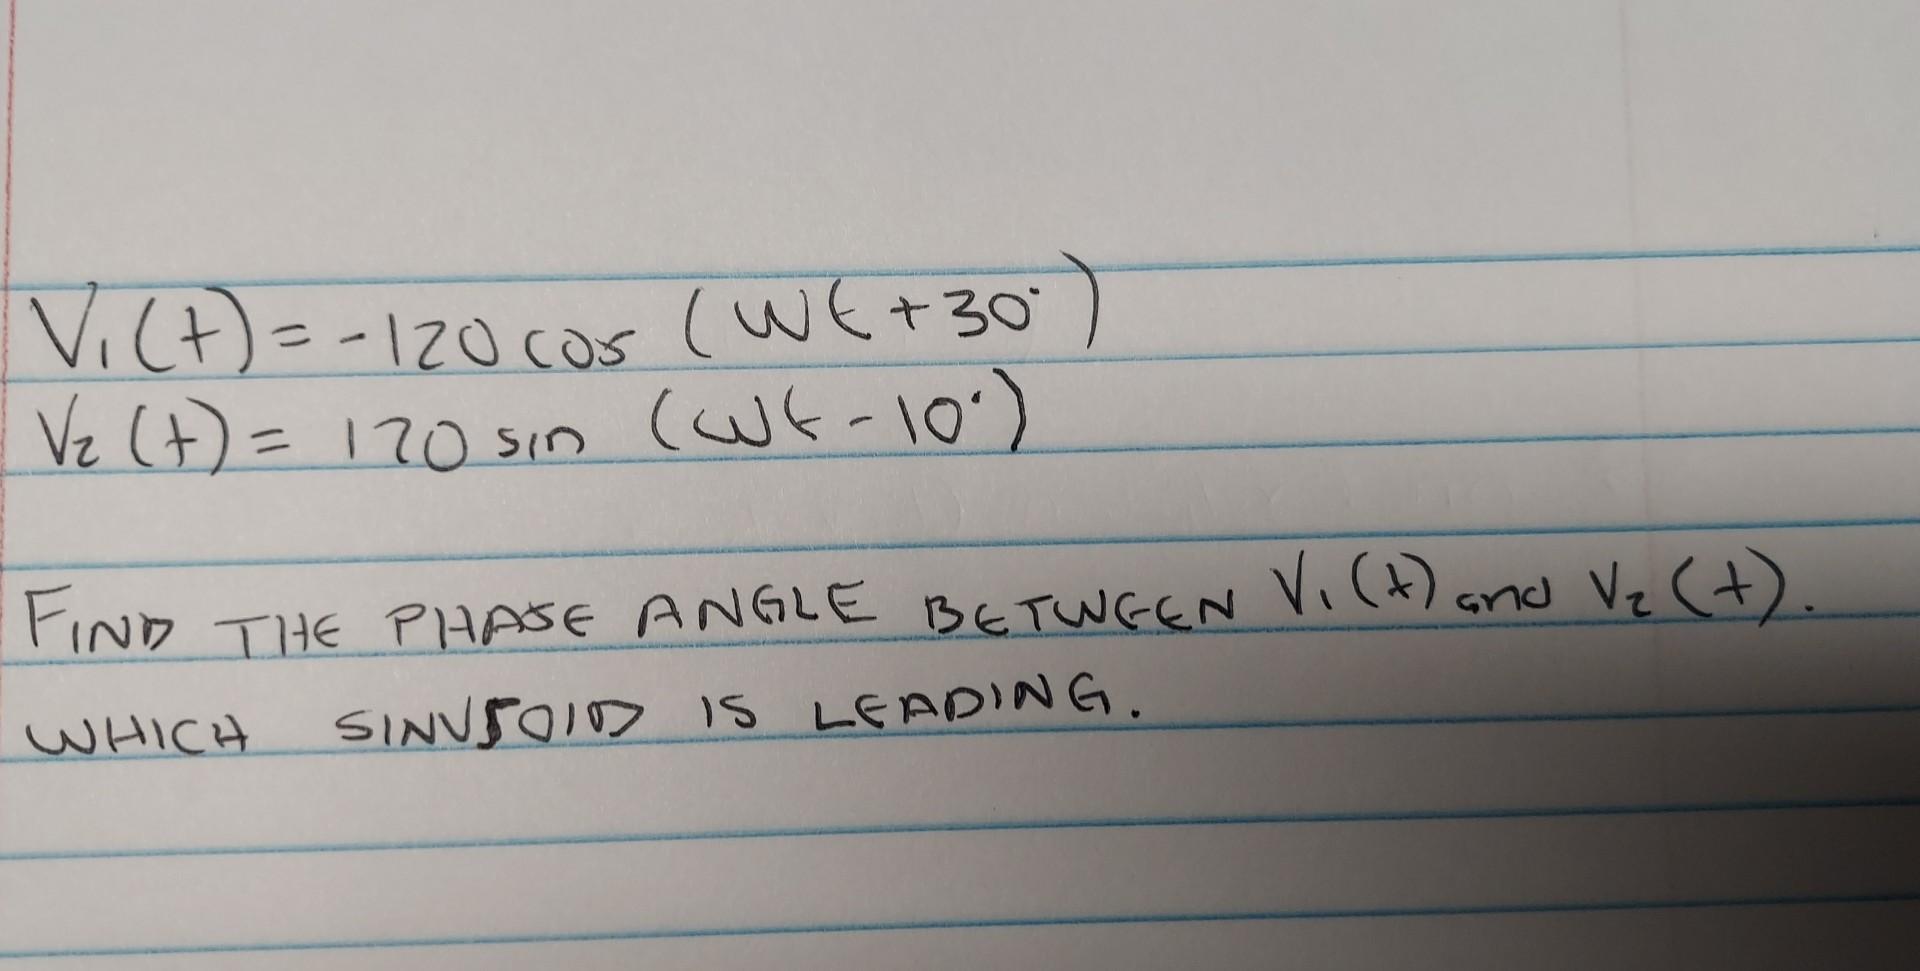 V₁(t) = -120 cos (ωt + 30°)
V₂(t) = 120 sin (ωt - 10°)
FIND THE PHASE ANGLE BETWEEN V₁(t) and V₂(t).
WHICH SINUSOID IS LEADING.